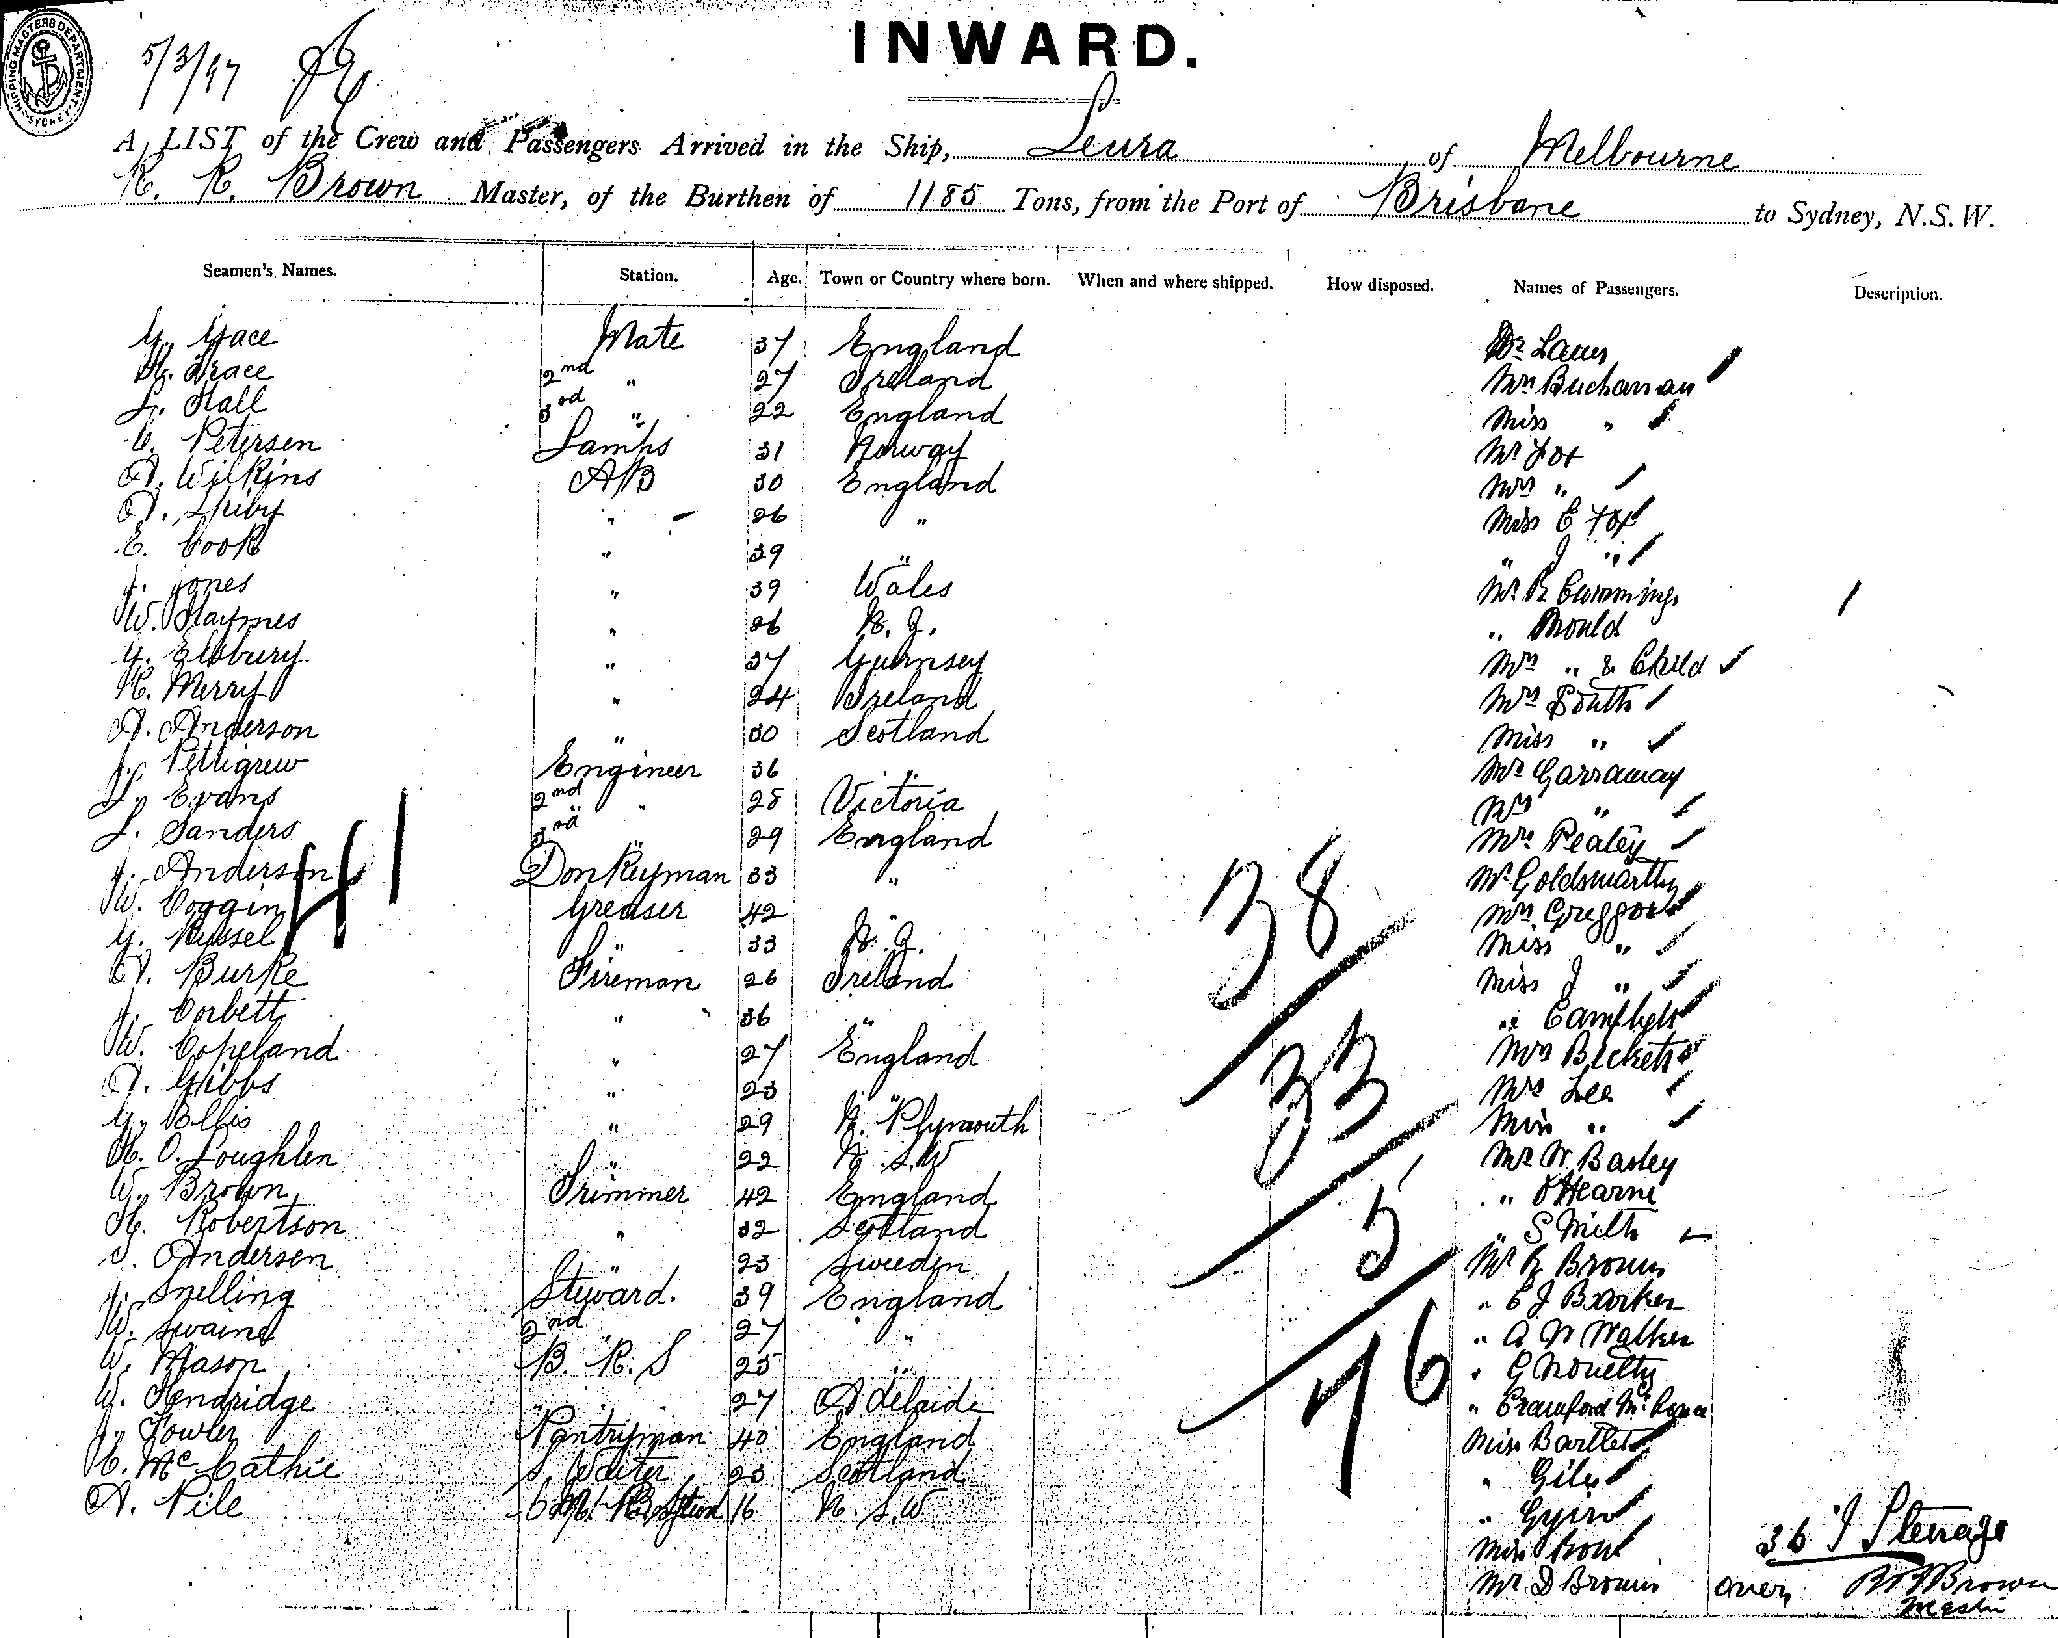 SHIPPING MASTERS DEPARTMENT SYDNEY
5/3/97
INWARD.
A LIST of the Crew and Passengers Arrived in the Ship, Leura of Melbourne
R. R. Brown Master, of the Burthen of 1185 Tons, from the Port of Brisbane to Sydney, N.S.W.
Seamen's Names. Station. Age. Town or Country where born. When and where shipped. How disposed. Names of Passengers. Description.
Mate 37 England Laws
H. Grace 2nd " 27 Ireland Mrs Buchanan
L. Hall 3rd " 22 England Miss "
C. Petersen Lamps 31 Norway Mr Fox
A. Wilkins AB 30 England Mrs "
A. " 26 " Miss E Fox
E. Cook " 39 " " J "
J. Jones " 39 Wales Mr R Cummings
W. Haymes " 26 N. Z. " Mould
G. Elsbury " 37 Guernsey Mrs " & Child
R. Merry " 24 Ireland Mrs South
A. Anderson " 30 Scotland Miss "
J. Pettigrew Engineer 36 " Mr Garraway
L. Evans 2nd " 28 Victoria Mrs "
L. Sanders 3rd " 29 England Mrs Pealey
J. Anderson Donkeyman 33 " Mr Goldsmarthy
W. Coggin Greaser 42 " Mrs Greggor
G. Russel " 33 N. Z. Miss "
A. Burke Fireman 26 Ireland Miss J "
J. Corbett " 36 " " Campbell
W. Copeland " 27 England Mrs Beckett
A. Gibbs " 23 " Mrs Lee
G. Ellis " 29 N. Plymouth Miss "
H. O. Loughlen " 22 N. S. W Mr W Basley
W. Brown Trimmer 42 England " O'Hearne
H. Robertson " 32 Scotland " S Milts
S. Andersen " 23 Sweden Mr R Brown
J. Snelling Steward. 39 England " E J Barker
W. Swaine 2nd " 27 " " A W Walker
W. Mason B. R. S 25 " " G
W. Hendridge " 27 Adelaide " Crawford
J. Fowler Pantryman 40 England Miss Bartlett
H. Mc Cathie S. Waiter 23 Scotland " Giles
A. Pile 16 N. S. W "
Miss
Mr D Brown
41
38
33
5
76
36 Steerage
over Brown
Master